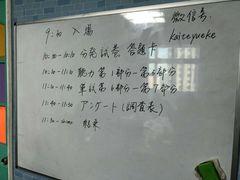 9:50 入場
微信号:
kaiceyueke
10:00-10:10 分発試巻 答題卡
10:10-11:10 聴力第1部分-第5部分
11:10-11:40 筆試第6部分-第7部分
11:40-11:50 アンケート(調査表)
結束